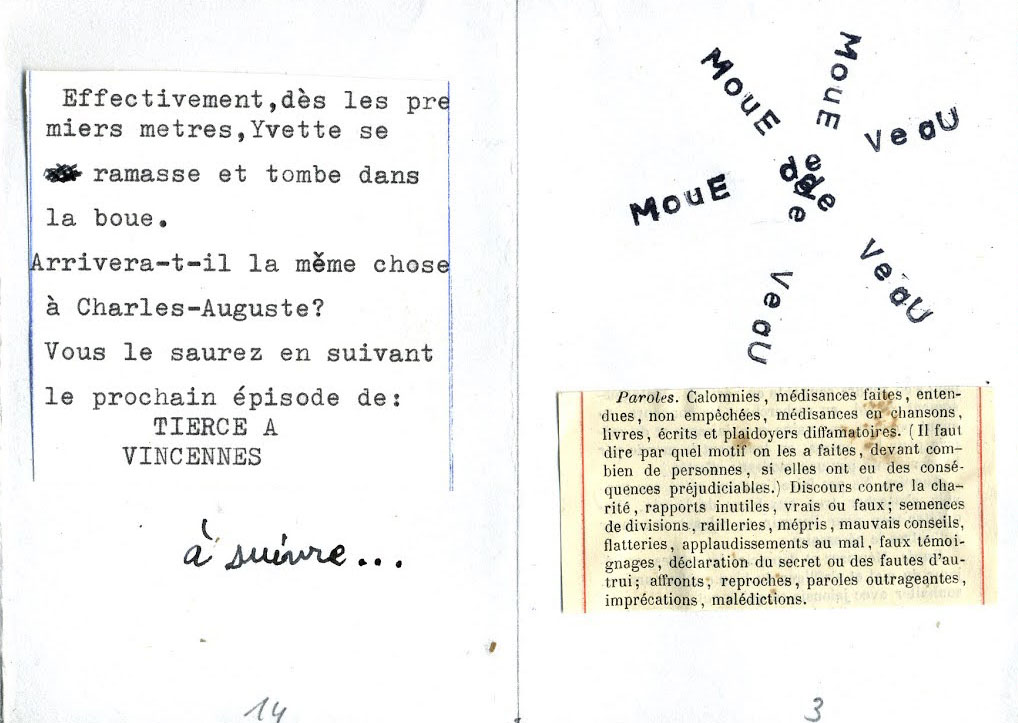 Effectivement,dès les pre
miers metres,Yvette se
ramasse et tombe dans
la boue.
Arrivera-t-il la même chose
à Charles-Auguste?
Vous le saurez en suivant
le prochain épisode de:
TIERCE A
VINCENNES
à suivre...
14
MouE
MouE
VeaU
de
de
de
MouE
VeaU
VeaU
Paroles. Calomnies, médisances faites, enten-
dues, non empêchées, médisances en chansons,
livres, écrits et plaidoyers diffamatoires. (Il faut
dire par quel motif on les a faites, devant com-
bien de personnes, si elles ont eu des consé-
quences préjudiciables.) Discours contre la cha-
rité, rapports inutiles, vrais ou faux; semences
de divisions, railleries, mépris, mauvais conseils,
flatteries, applaudissements au mal, faux témoi-
gnages, déclaration du secret ou des fautes d'au-
trui; affronts, reproches, paroles outrageantes,
imprécations, malédictions.
3